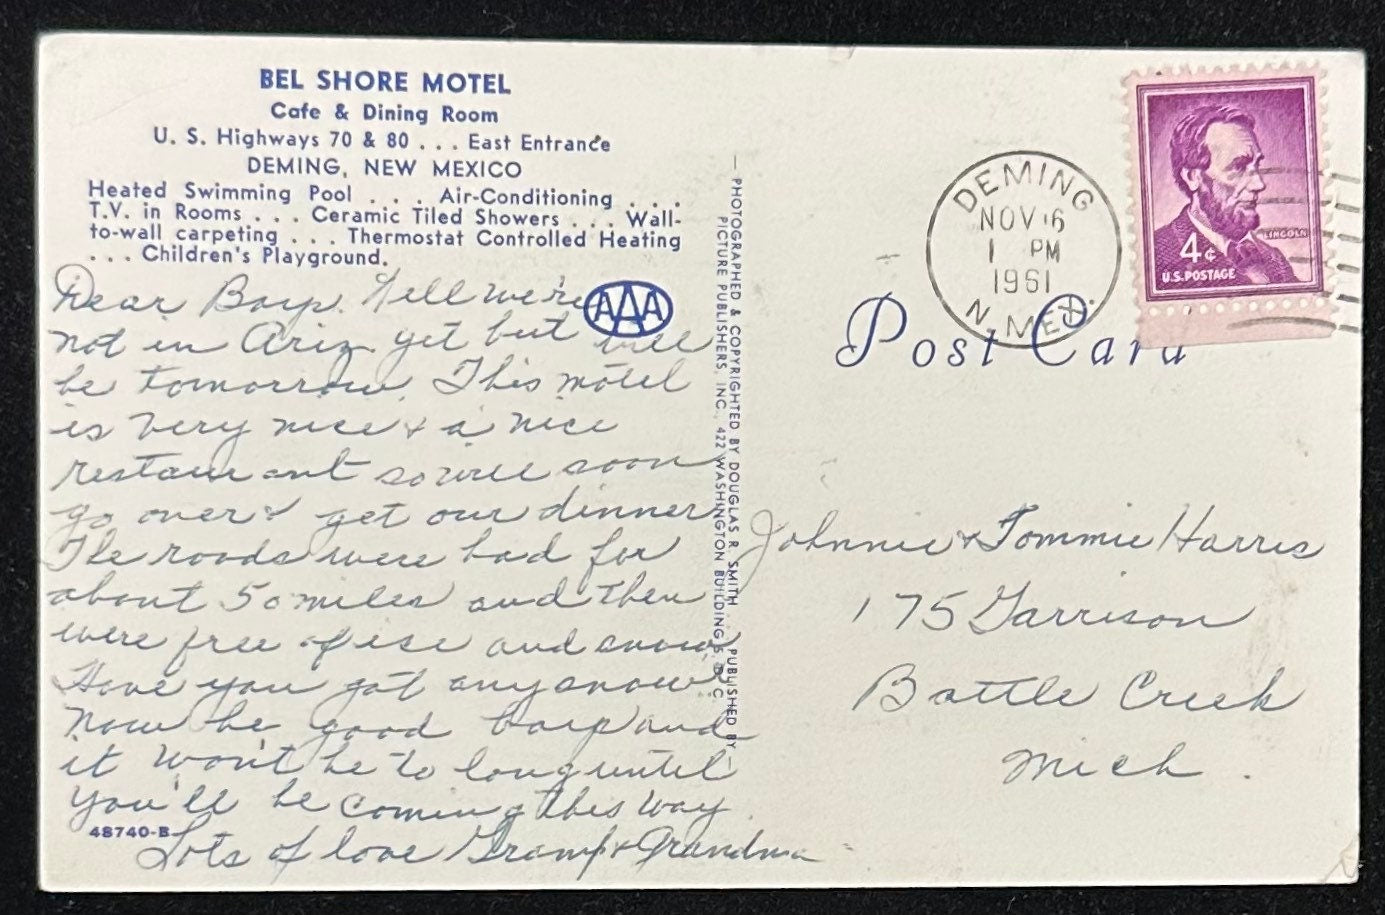 BEL SHORE MOTEL
Cafe & Dining Room
U. S. Highways 70 & 80 . . . East Entrance
DEMING, NEW MEXICO
Heated Swimming Pool . . . Air-Conditioning . . .
T.V. in Rooms . . . Ceramic Tiled Showers . . . Wall-
to-wall carpeting . . . Thermostat Controlled Heating
. . . Children's Playground.
AAA
Dear Boys. Well we're
not in Ariz. yet but will
be tomorrow. This motel
is very nice & a nice
restaurant so will soon
go over & get our dinner.
The roads were bad for
about 50 miles and then
were free of ise and snow.
Have you got any snow
now be good boys and
it won't be to long until
you'll be coming this way.
Lots of love Gramp & Grandma
48740-B
PHOTOGRAPHED & COPYRIGHTED BY DOUGLAS R. SMITH PUBLISHED BY
PICTURE PUBLISHERS, INC., 422 WASHINGTON BUILDING, D.C.
DEMING
NOV 6
1 PM
1961
N. MEX.
LINCOLN
4¢
U.S. POSTAGE
Post Card
Johnnie & Tommie Harris
175 Garrison
Battle Creek
Mich.